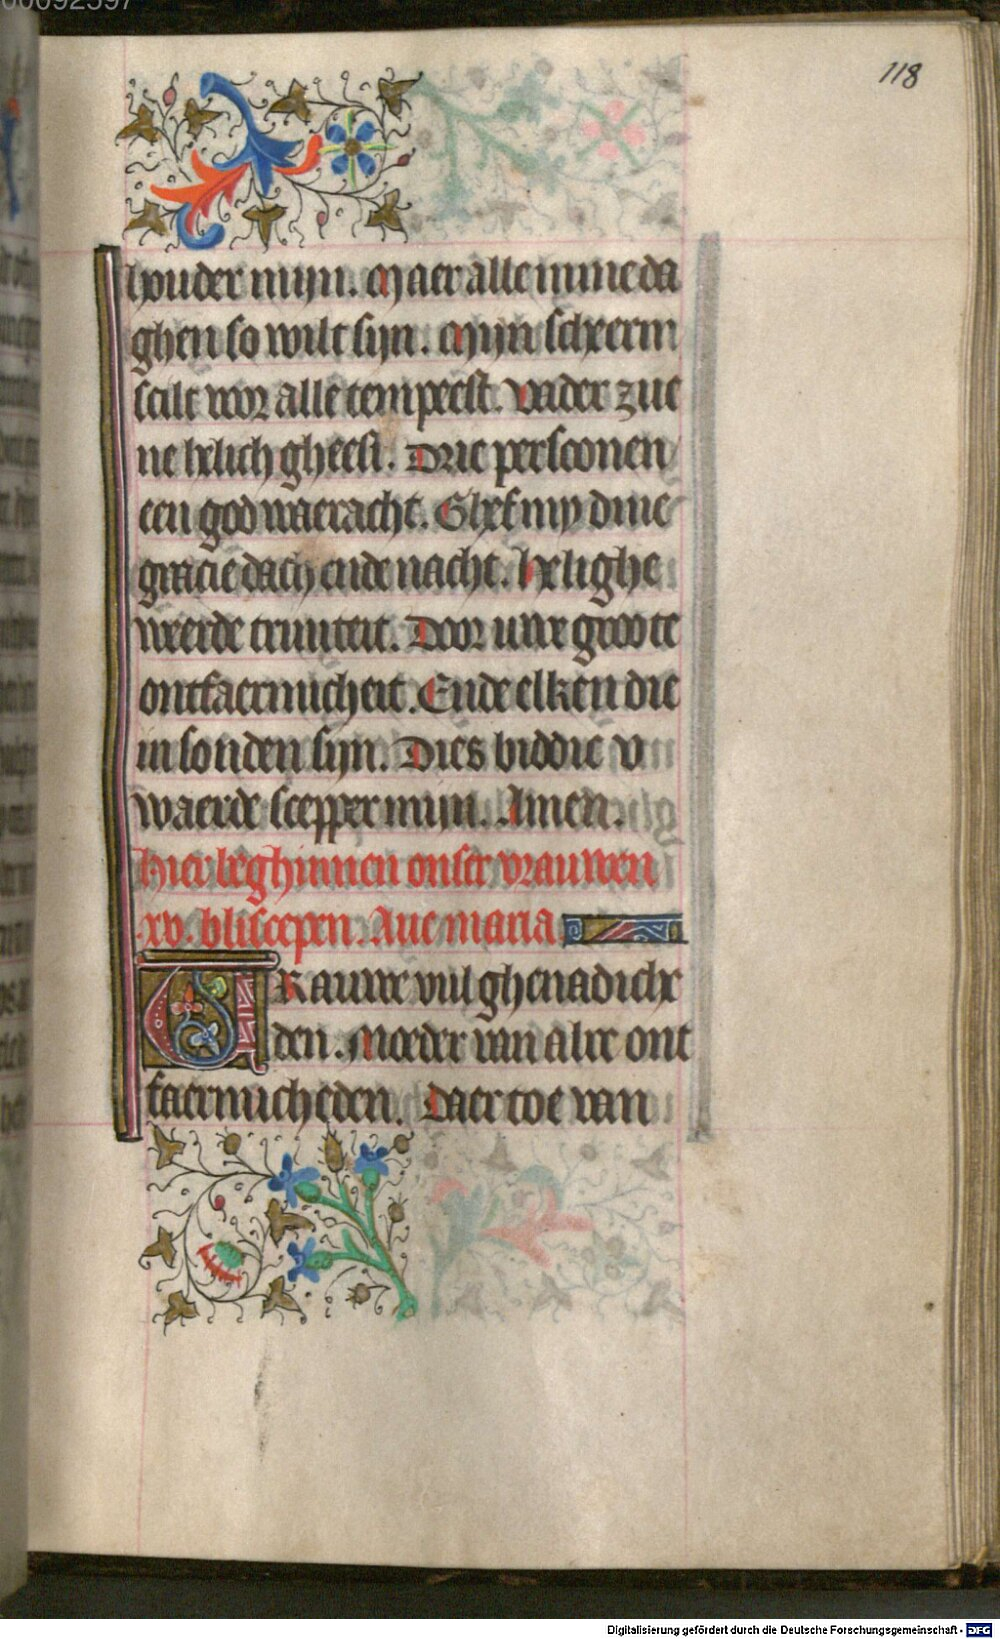 00092597
118
houder mijn. Maer alle mine da
ghen so wilt sijn. Mijn scherm
scilt voor alle tempeest. Vader zue
ne helich gheest. Drie persoonen
een god waeracht. Ghef my dine
gracie dach ende nacht. Helighe
weerde triniteit. Door uwe groote
ontfaermicheit. Ende elken die
in sonden sijn. Dies biddic v
waerde scepper mijn. Amen.
Hier beghinnen onser vrauwen
.xv. bliscepen. Aue maria
VRauwe vul ghenadiche
den. Moeder van alre ont
faermicheden. Daer toe van
Digitalisierung gefördert durch die Deutsche Forschungsgemeinschaft - DFG